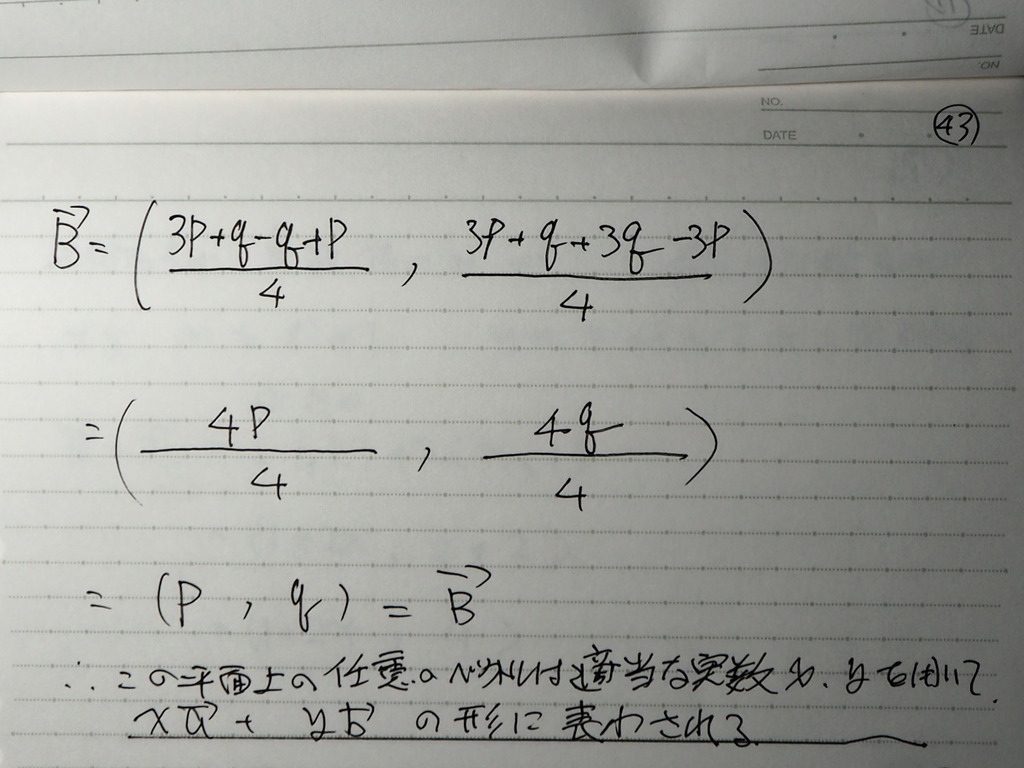 DATE
NO
NO.
DATE
43
B⃗ = ( (3p+q-q+p)/4 , (3p+q+3q-3p)/4 )
= ( 4p/4 , 4q/4 )
= (p , q) = B⃗
∴ この平面上の任意のベクトルは適当な実数x、yを用いて
xa⃗ + yb⃗ の形に表わされる